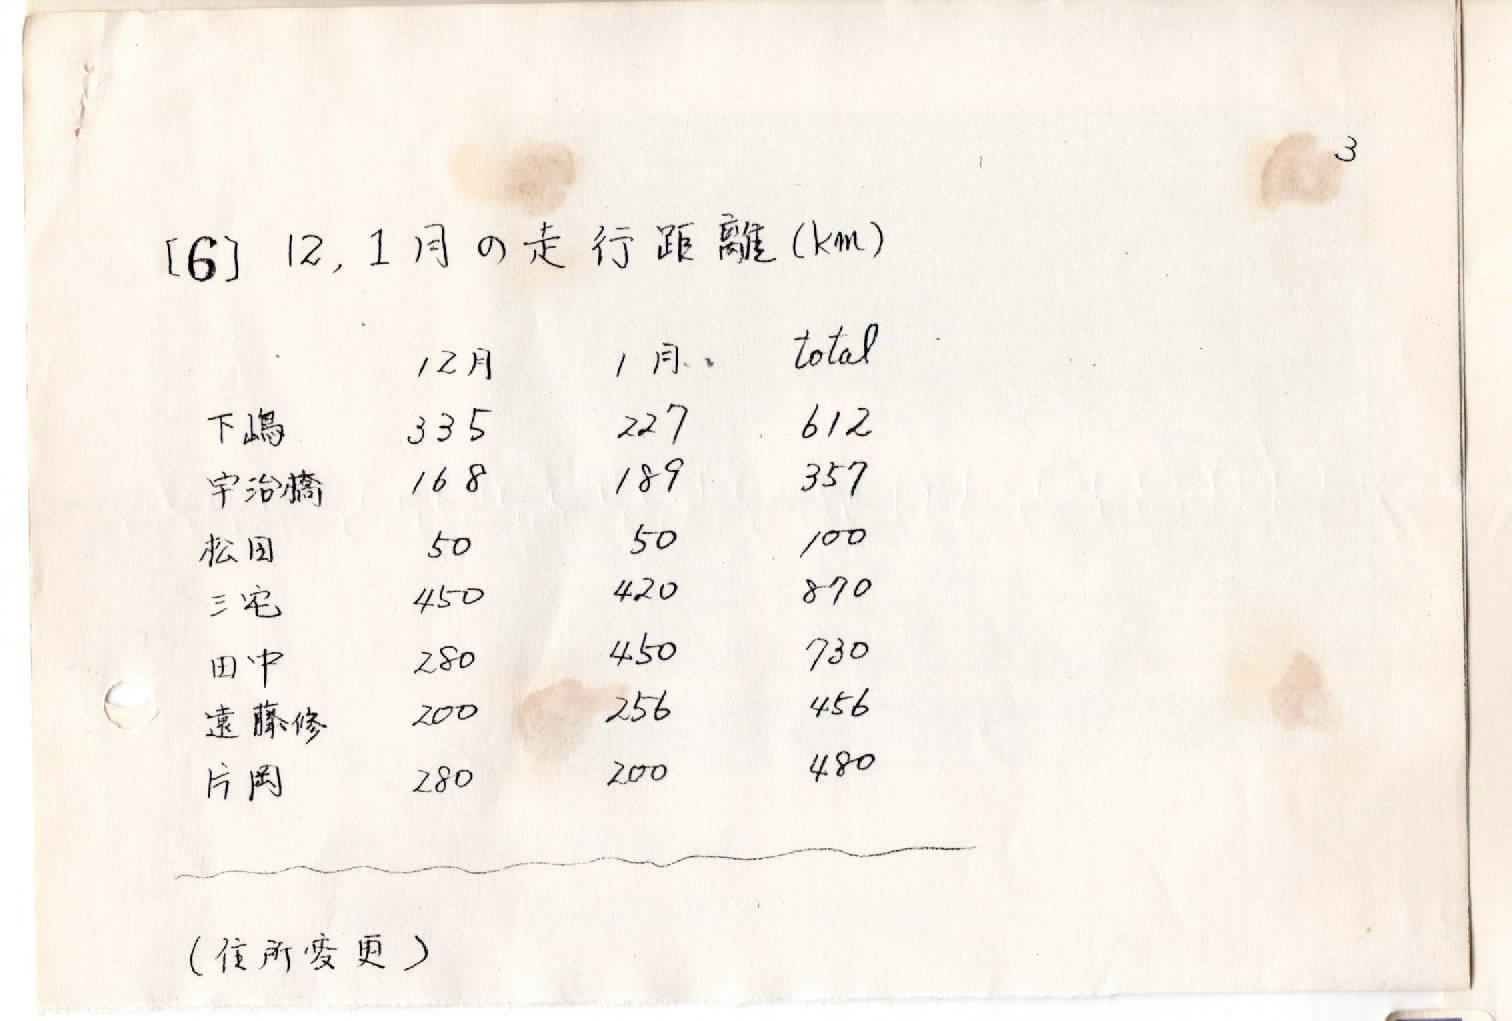 3
[6] 12, 1月の走行距離(km)
12月 1月 total
下嶋 335 227 612
宇治橋 168 189 357
松田 50 50 100
三宅 450 420 870
田中 280 450 730
遠藤修 200 256 456
片岡 280 200 480
(住所変更)